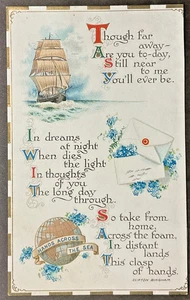 Though far
away—
Are you to-day,
Still near
to me
You'll ever be.
In dreams
at night
When dies
the light
In thoughts
of you
The long day
through.
So take from
home,
Across the foam,
In distant
lands
This clasp
of hands.
CLIFTON BINGHAM
HANDS ACROSS
THE SEA